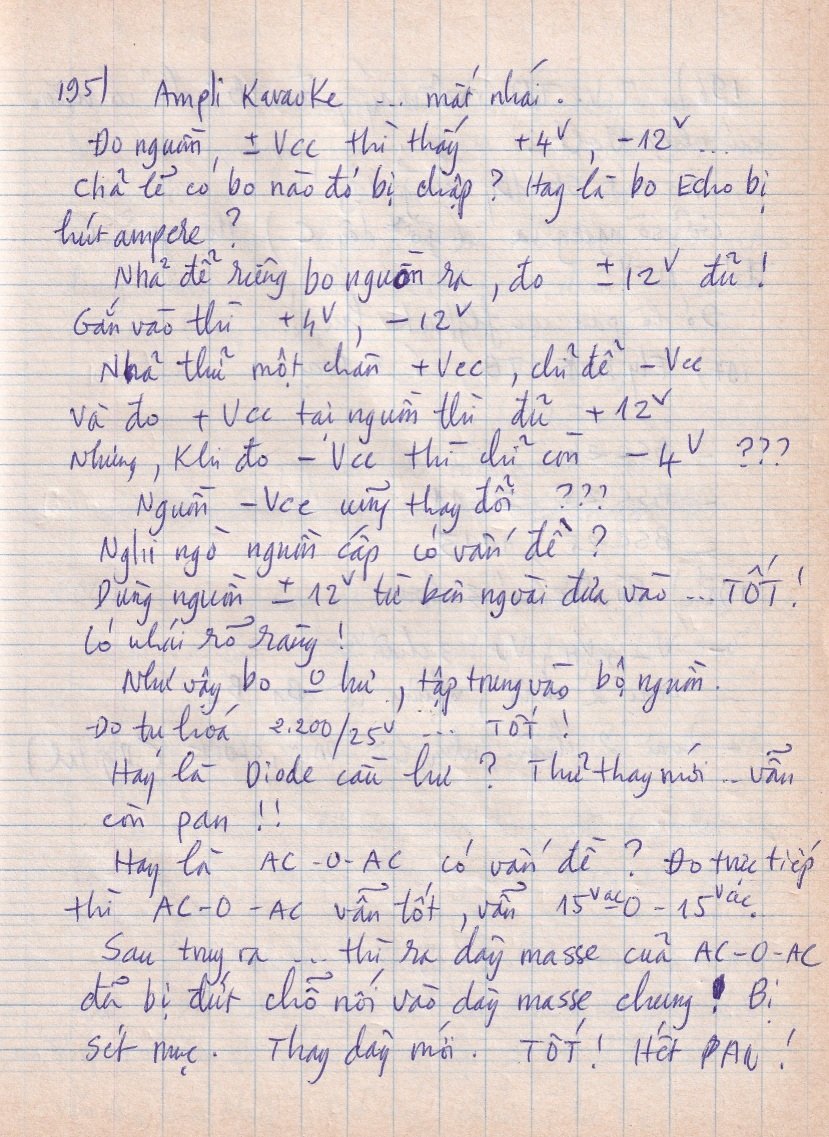 195/ Ampli Karaoke ... mất nhái.
Đo nguồn, ± Vcc thì thấy +4V, -12V ...
Chả lẽ có bo nào đó bị chập? Hay là bo Echo bị
hút ampere?
Nhả để riêng bo nguồn ra, đo ±12V đủ!
Gắn vào thì +4V, -12V
Nhả thử một chân +Vcc, chỉ để -Vcc
Và đo +Vcc tại nguồn thì đủ +12V
Nhưng, khi đo -Vcc thì chỉ còn -4V ???
Nguồn -Vcc cũng thay đổi ???
Nghi ngờ nguồn cấp có vấn đề?
Dùng nguồn ±12V từ bên ngoài đưa vào ... TỐT!
Có nhái rõ ràng!
Như vậy bo O hư, tập trung vào bộ nguồn.
Đo tụ hoá 2.200/25V ... TỐT!
Hay là Diode cầu hư? Thử thay mới ... vẫn
còn pan!!
Hay là AC-O-AC có vấn đề? Đo trực tiếp
thì AC-O-AC vẫn tốt, vẫn 15Vac-O-15Vac.
Sau truy ra ... thì ra dây masse của AC-O-AC
đã bị đứt chỗ nối vào dây masse chung! Bị
sét mục. Thay dây mới. TỐT! Hết PAN!